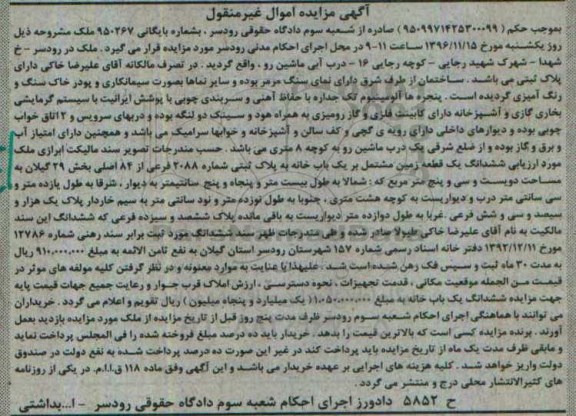 آگهی مزایده اموال غیرمنقول
بموجب حکم (۹۵۰۹۹۷۱۴۲۵۳۰۰۰۹۹) صادره از شعبه سوم دادگاه حقوقی رودسر ، بشماره بایگانی ۹۵۰۲۶۷ ملک مشروحه ذیل
روز یکشنبه مورخ ۱۳۹۶/۱۱/۱۵ ساعت ۱۱-۹ در محل اجرای احکام مدنی رودسر مورد مزایده قرار می گیرد . ملک در رودسر - خ
شهدا - شهرک شهید رجایی - کوچه رجایی ۱۶ - درب آبی ماشین رو ، واقع گردید . در تصرف مالکانه آقای علیرضا خاکی دارای
پلاک ثبتی می باشد . ساختمان از طرف شرق دارای نمای سنگ مرمر بوده و سایر نماها بصورت سیمانکاری و پودر خاک سنگ و
رنگ آمیزی گردیده است . پنجره ها آلومینیوم تک جداره با حفاظ آهنی و سربندی چوبی با پوشش ایرانیت با سیستم گرمایشی
بخاری گازی و آشپزخانه دارای کابینت فلزی و گاز رومیزی به همراه هود و سینک دو لنگه بوده و دربهای سرویس و ۲ اتاق خواب
چوبی بوده و دیوارهای داخلی دارای رویه ی گچی و کف سالن و آشپزخانه و خوابها سرامیک می باشد و همچنین دارای امتیاز آب
و برق و گاز بوده و از ضلع شرقی یک درب ماشین رو به کوچه ۸ متری می باشد . حسب مندرجات تصویر سند مالکیت ابرازی ملک
مورد ارزیابی ششدانگ یک قطعه زمین مشتمل بر یک باب خانه به پلاک ثبتی شماره ۲۰۸۸ فرعی از ۸۴ اصلی بخش ۲۹ گیلان به
مساحت دویست و سی و پنج متر مربع که : شمالا به طول بیست متر و پنجاه و پنج سانتیمتر به دیوار ، شرقا به طول یازده متر و
سی سانتی متر درب و دیواریست به کوچه هشت متری ، جنوبا به طول نوزده متر و نود سانتی متر به سیم خاردار پلاک یک هزار و
سیصد و سی و شش فرعی .غربا به طول دوازده متر دیواریست به باقی مانده پلاک ششصد و سیزده فرعی که ششدانگ این سند
مالکیت به نام آقای علیرضا خاکی طیولا صادر شده و طی مندرجات ظهر سند ششدانگ مورد ثبت برابر سند رهنی شماره ۱۲۷۸۶
مورخ ۱۳۹۲/۱۲/۱۱ دفتر خانه اسناد رسمی شماره ۱۵۷ شهرستان رودسر استان گیلان به نفع ثامن الائمه به مبلغ ۹۱۰,۰۰۰,۰۰۰ ریال
به مدت ۳۰ ماه ثبت و سپس فک رهن شده است شد . علیهذا با عنایت به موارد معنونه و در نظر گرفتن کلیه مولفه های موثر در
قیمت من الجمله موقعیت مکانی ، قدمت تجهیزات ، نحوه دسترسی ، ارزش املاک قرب جوار و رعایت جمیع جهات قیمت پایه
جهت مزایده ششدانگ یک باب خانه به مبلغ ۱,۰۵۰,۰۰۰,۰۰۰ ( یک میلیارد و پنجاه میلیون ) ریال تقویم و اعلام می گردد . خریداران
می توانند با هماهنگی اجرای احکام شعبه سوم رودسر ظرف مدت پنج روز قبل از تاریخ مزایده از ملک مورد مزایده بازدید بعمل
آورند . برنده مزایده کسی است که بالاترین قیمت را بدهد . خریدار باید ده درصد مبلغ فروخته شده را فی المجلس پرداخت نماید
و مابقی ظرف مدت یک ماه از تاریخ مزایده باید پرداخت کند در غیر این صورت ده درصد پرداخت شده به نفع دولت در صندوق
دولت واریز خواهد شد . کلیه هزینه های اجرایی بر عهده خریدار می باشد و این آگهی وفق ماده ۱۱۸ ق.ا.ا.م. در یکی از روزنامه
های کثیرالانتشار محلی درج و منتشر می گردد .
ح ۵۸۵۲ دادورز اجرای احکام شعبه سوم دادگاه حقوقی رودسر - ا...بداشتی